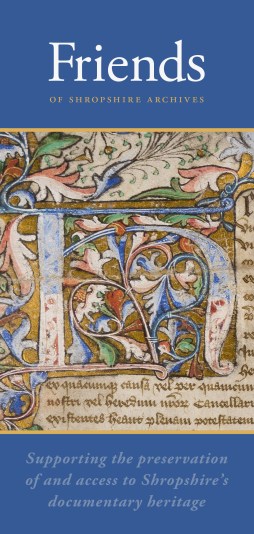 Friends
OF SHROPSHIRE ARCHIVES
ex quacumque causa vel per quamcum
nostri vel heredum Cancellari
existentes heant plenam potestatem
Supporting the preservation
of and access to Shropshire's
documentary heritage